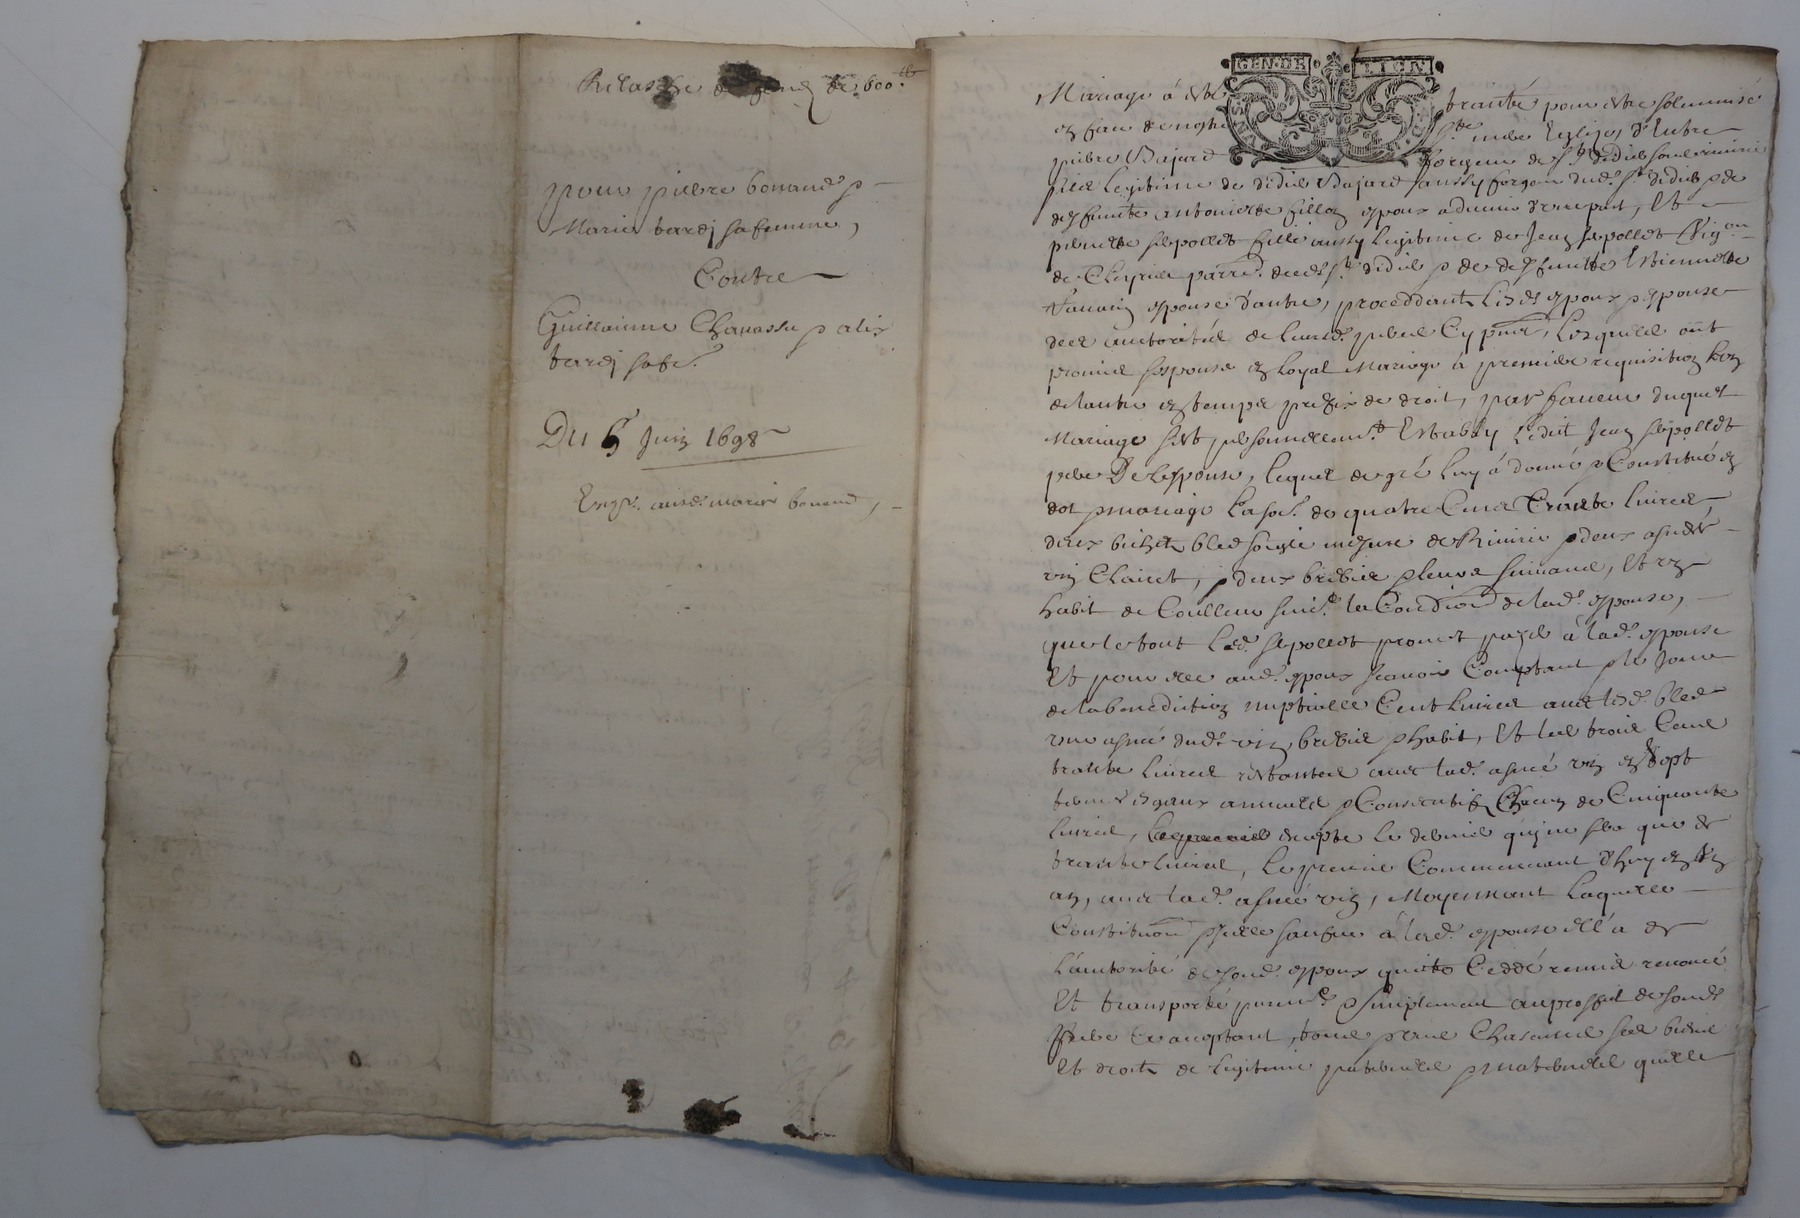 Relasche de 600ᵗᵗ
pour pierre bonnand p
Marie tardj sa femme,
Contre
Guillaume Chavassu p alix
tardj sa fe.
Du 5 Juin 1698
Exp. aud. marié bonnand,
GEN·DE LION
Mariage á esté traitté pour estre solemnisé
en face de nostre Ste mere Eglize, d'Entre
pierre Bajard forgeur de St didier soubs
filz legitime de didier Bajard aussy forgeur dud. St didier p de
deffuncte antoinette fillon espoux advenir d'une part, Et
pierrette sepollet fille aussy legitime de Jean sepollet Vigon
de parre. St didier p de deffuncte Estiennette
espouse d'autre, proceddant lesd. espoux p espouse
de l'authorité de leursd. peres Cy pnts, Lesquels ont
promis s'espouser en loyal Mariage á premiere requisition l'un
de lautre en temps prefix de droit, par faveur duquel
Mariage s'est personnellemt Establý Ledit Jean sepollet
pere De lespouse, lequel de gré luy á donné p Constitué en
dot p mariage la so. de quatre Cens Trente livres,
deux bichets bled soigle mezure de p deux asnées
vin Clairet, p deux brebis p leurs suivans, Et un
habit de Coulleur suivt la Condition de lad. espouse,
que le tout Led. sepollet promet payer á lad. espouse
Et pour elle aud. espoux scavoir Comptant p le Jour
de la benediction nuptialle Cent livres avec led. bled
une asnée dud. vin, brebis p habit, Et les trois Cens
trente livres restantes avec lad. asnée vin en sept
termes esgaux annuels p Consecutifs Chacun de Cinquante
livres, excepte le dernier qui ne sera que de
trante livres, Le premier Commencant d'huy en un
an, avec lad. asnée vin, Moyennant Laquelle
Constitution p'elle á lad. espouse ell'a de
L'authorité de sond. espoux quitté Ceddé remis renoncé
Et transporté puremt p simplement au proffit de sond.
Pere Ce acceptant, tous p uns Chascuns ses biens
Et droits de legitime paternels p maternels quelle